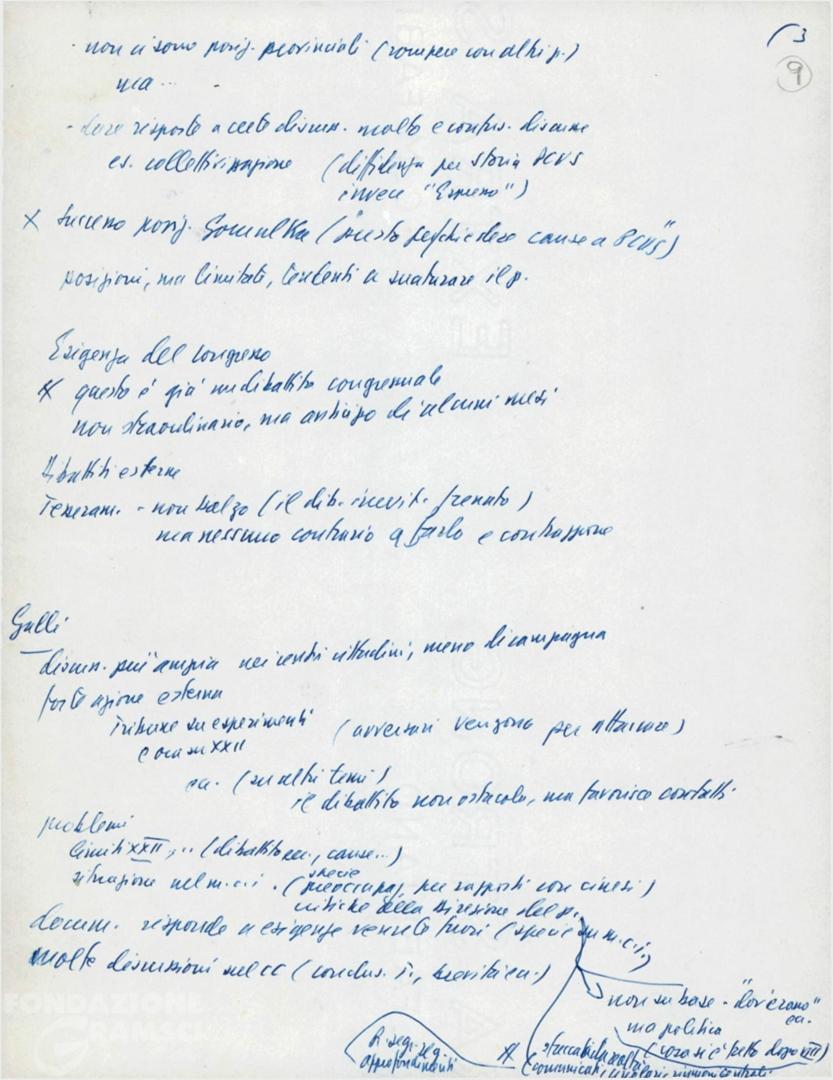 3
9
- non ci sono posiz. provinciali (rompere con altri p.)
ma ...
- dare risposte a certe discuss. molto e confus. discusse
es. collettivizzazione (diffidenza per storia PCUS
invece "Espresso")
x successo posiz. Gomulka ("questo perché dece cause a PCUS")
posizioni, ma limitate, tendenti a snaturare il p.
Esigenza del congresso
x questo è già un dibattito congressuale
non straordinario, ma anticipo di alcuni mesi
Dibattiti esterni
Tesseram. - non balzo (il dib. inevit. frenato)
ma nessuno contrario a farlo e contrapporre
Galli
discuss. più ampia nei centri cittadini, meno di campagna
forte azione esterna
Tribune su esperimenti (avversari vengono per attaccare)
e ora su XXII
ecc. (su altri temi)
il dibattito non ostacola, ma favorisce contatti
problemi
limiti XXII, .. (dibattito ecc., cause...)
situazione nel m.c.i. (preoccupaz. specie per rapporti con cinesi)
critiche della Direzione del p.
docum. risponde a esigenze venute fuori (specie su m.c.i.)
molte discussioni sul CC (conclus. T., brevità ecc.)
non su base - "dov'erano"
ecc.
ma politica
(cosa si è fatto dopo VIII)
approfondimenti
FONDAZIONE
GRAMSCI